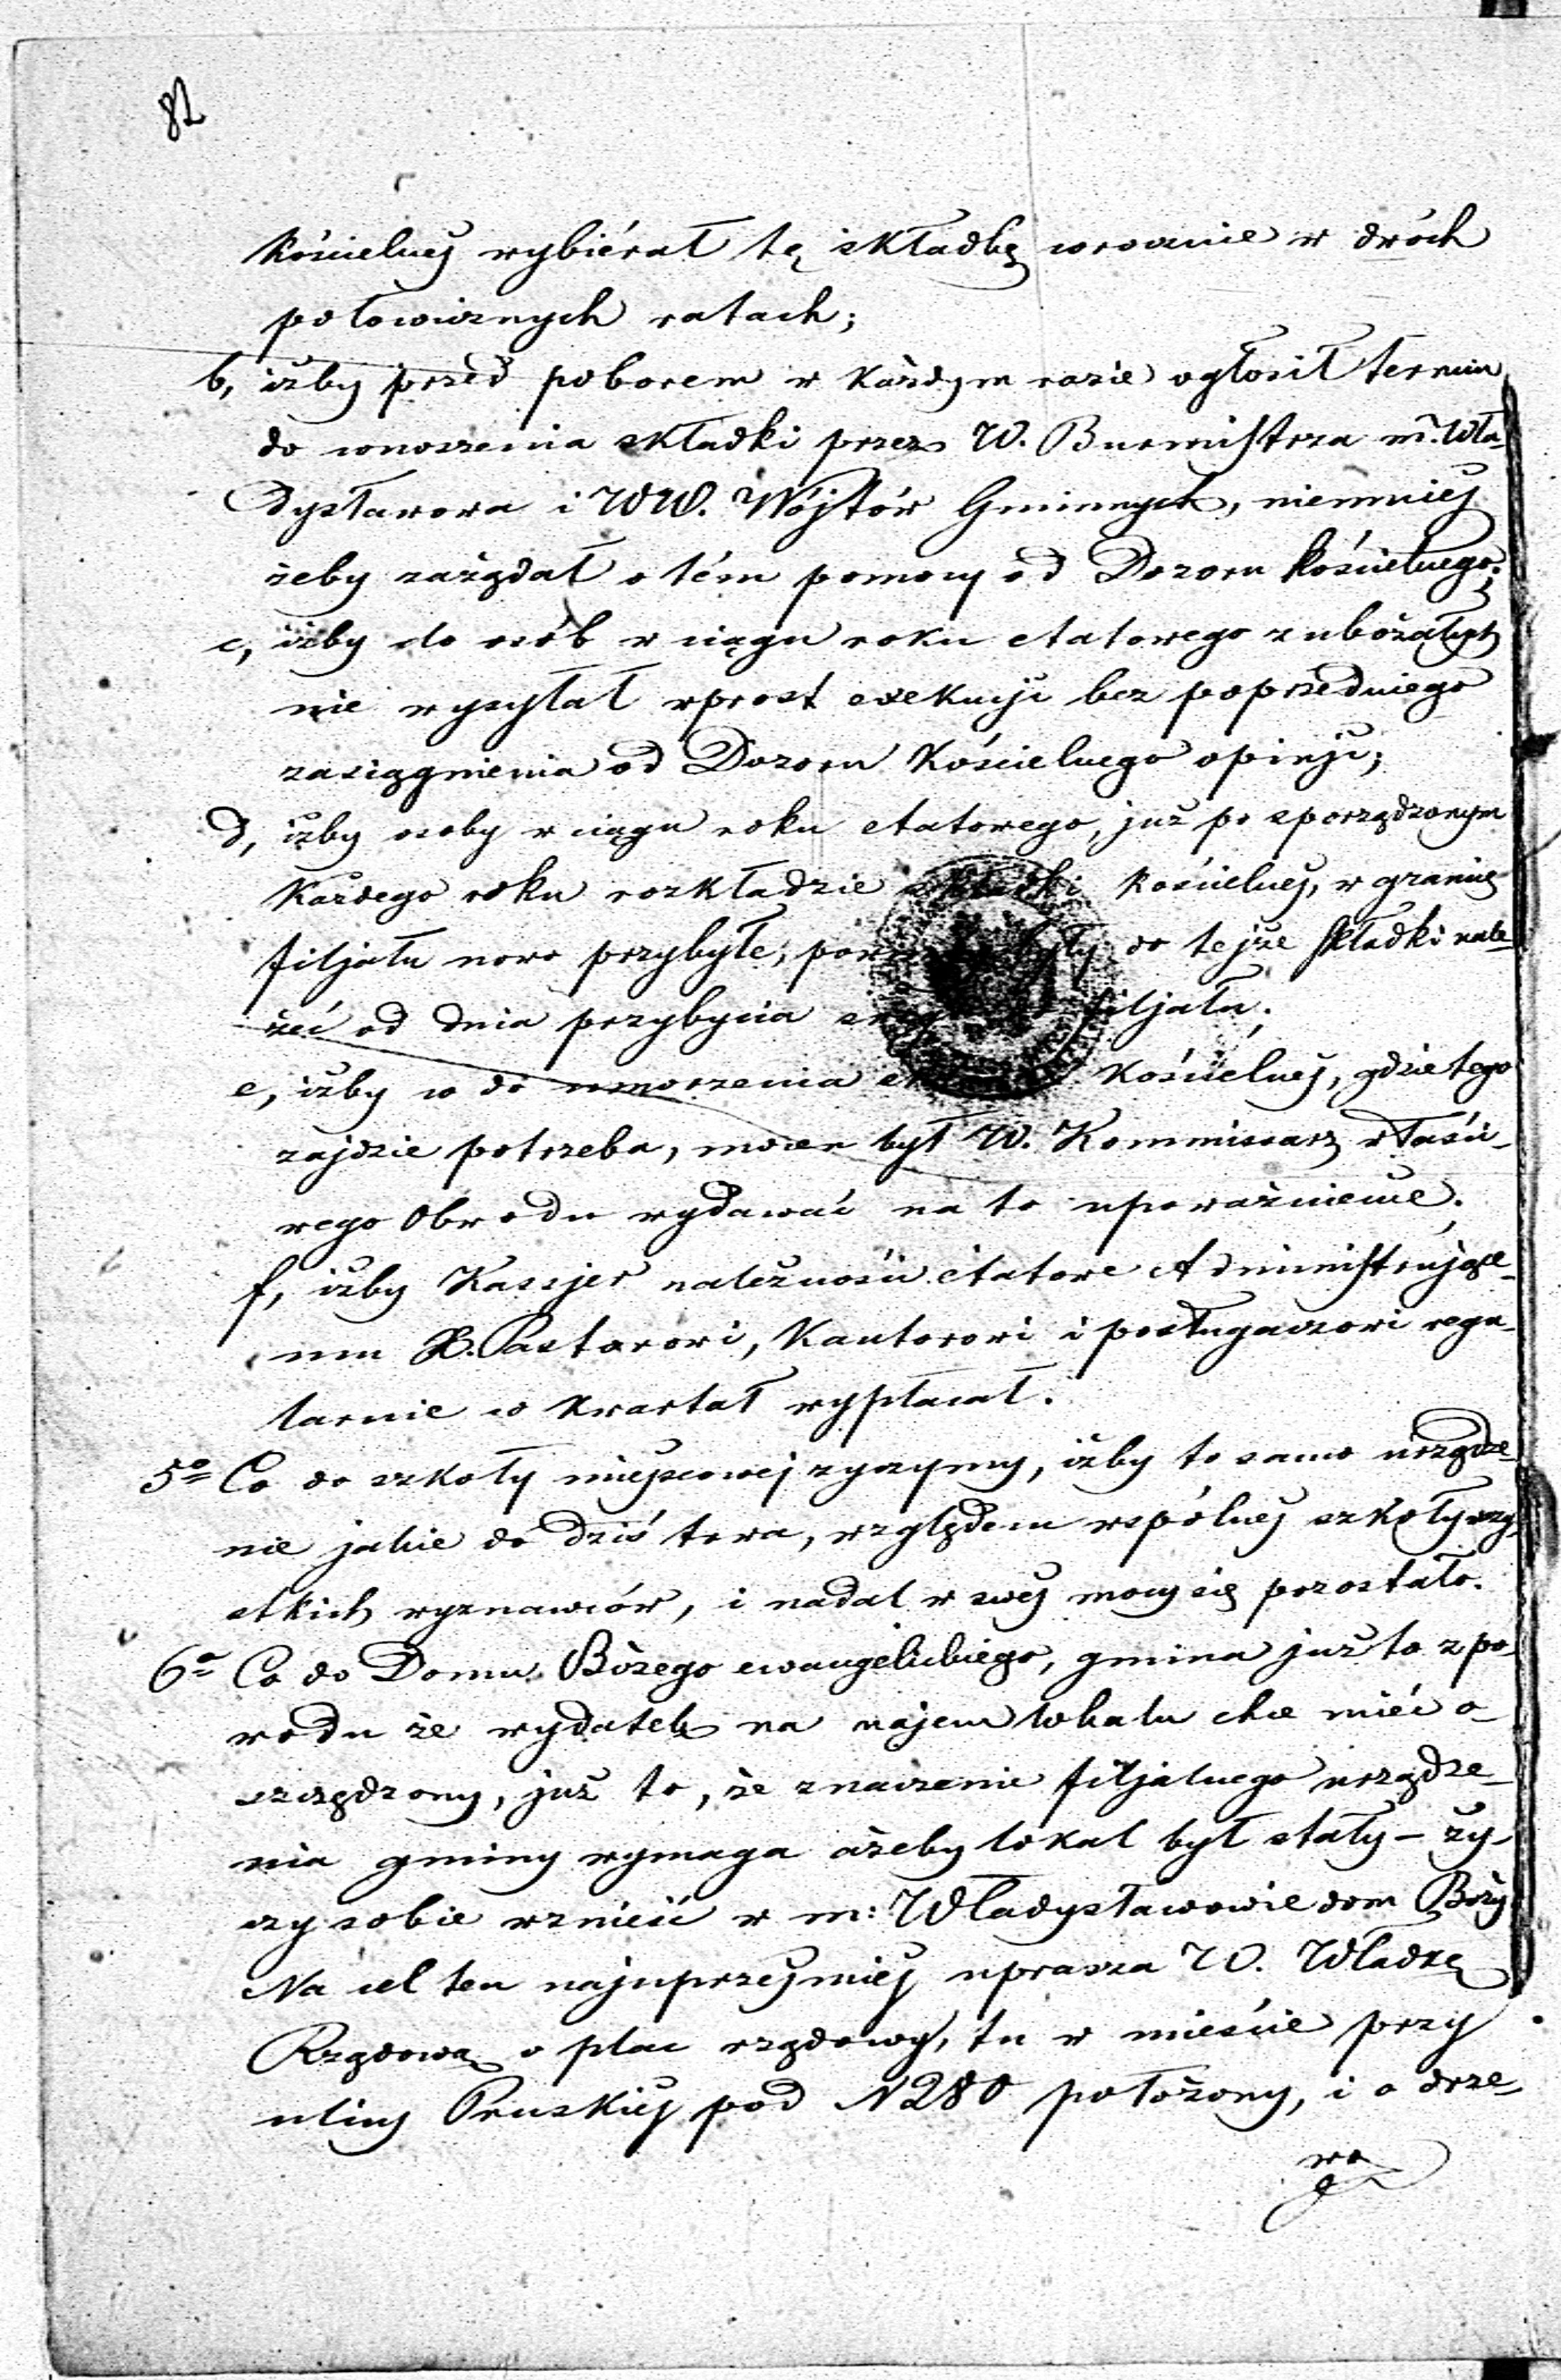 82
kościelnéj wybiérał tę składkę corocznie w dwóch
połowicznych ratach;
b, iżby przed poborem w każdym razie ogłosił termin
do wnoszenia składki przez W. Burmistrza m. Wła-
dysławowa i WW. Wójtów Gminnych, niemniéj
żeby zażądał o tém pomocy od Dozoru kościelnego;
c, iżby do osób w ciągu roku etatowego zubożałych
nie wysyłał wprost exekucji bez poprzedniego
zasiągnienia od Dozoru Kościelnego opinji;
d, iżby osoby w ciągu roku etatowego, już po sporządzonym
każdego roku rozkładzie składki kościelnéj, w granicę
filjału nowo przybyłe, do tejże składki nale-
żeć od dnia przybycia filjału;
e, iżby co do umorzenia Kościelnéj, gdzie tego
zajdzie potrzeba, mocen był W. Kommissarz właści-
wego Obwodu wydawać na to upoważnienie;
f, iżby Kassjer należności etatowe Administrujące-
mu X. Pastorowi, Kantorowi i posługaczowi regu-
larnie co kwartał wypłacał.
5o Co do szkoły miejscowej życzymy, iżby to samo urządze-
nie jakie do dziś trwa, względem wspólnéj szkoły wszy-
stkich wyznawców, i nadal w swéj mocy się pozostało.
6o Co do Domu Bożego ewangelickiego, gmina już to z po-
wodu że wydatek na najem lokalu chce mieć o-
szczędzony, już to, że znaczenie filjalnego urządze-
nia gminy wymaga ażeby lokal był stały – ży-
czy sobie wznieść w m: Władysławowie dom Boży
Na cel ten najuprzejmiéj uprasza W. Władzę
Rządową o plac rządowy, tu w mieście przy
ulicy Pruskiéj pod N 280 położony, i o drze-
wo